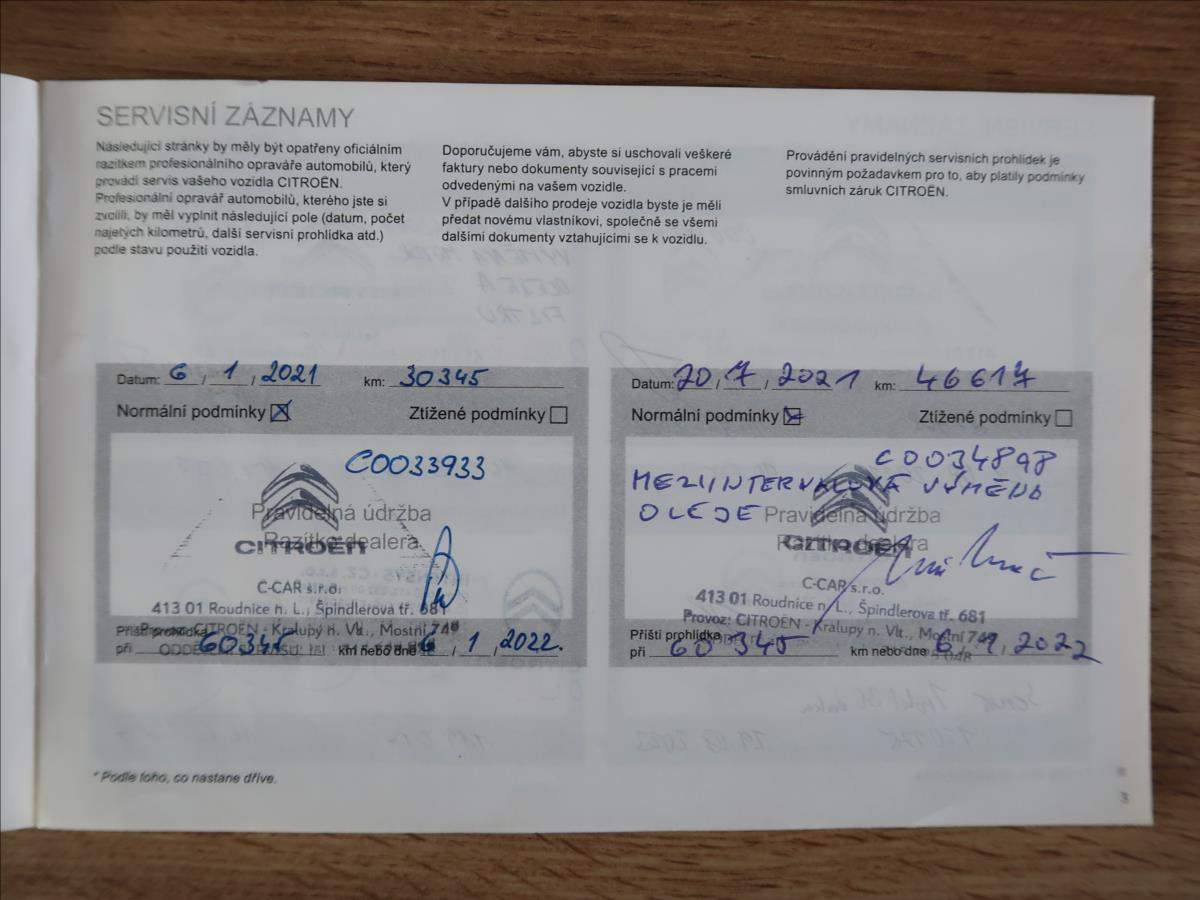 SERVISNÍ ZÁZNAMY
Následující stránky by měly být opatřeny oficiálním
razítkem profesionálního opraváře automobilů, který
provádí servis vašeho vozidla CITROËN.
Profesionální opravář automobilů, kterého jste si
zvolili, by měl vyplnit následující pole (datum, počet
najetých kilometrů, další servisní prohlídka atd.)
podle stavu použití vozidla.
Doporučujeme vám, abyste si uschovali veškeré
faktury nebo dokumenty související s pracemi
odvedenými na vašem vozidle.
V případě dalšího prodeje vozidla byste je měli
předat novému vlastníkovi, společně se všemi
dalšími dokumenty vztahujícími se k vozidlu.
Provádění pravidelných servisních prohlídek je
povinným požadavkem pro to, aby platily podmínky
smluvních záruk CITROËN.
Datum: 6 / 1 / 2021 km: 30345
Normální podmínky Ztížené podmínky
C0033933
Pravidelná údržba
Razítko dealera
CITROËN
C-CAR s.r.o.
413 01 Roudnice n. L., Špindlerova tř. 681
Provoz: CITROËN - Kralupy n. Vlt., Mostní 749
Příští prohlídka
při 60345 km nebo dne 6 / 1 / 2022.
Datum: 20 / 7 / 2021 km: 46617
Normální podmínky Ztížené podmínky
C0034898
MEZIINTERVALOVÁ VÝMĚNA
OLEJE
Pravidelná údržba
Razítko dealera
CITROËN
C-CAR s.r.o.
413 01 Roudnice n. L., Špindlerova tř. 681
Provoz: CITROËN - Kralupy n. Vlt., Mostní 749
Příští prohlídka
při 60345 km nebo dne 6 / 1 / 2022
* Podle toho, co nastane dříve.
3